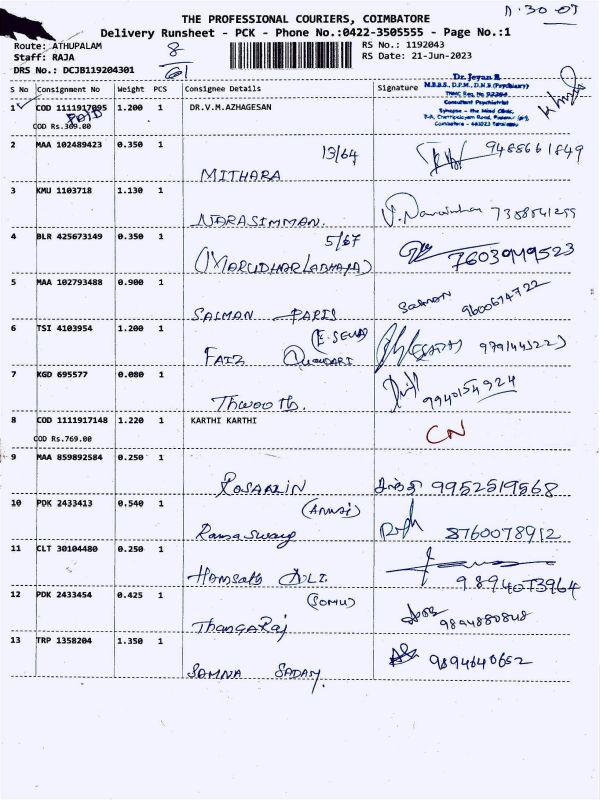 THE PROFESSIONAL COURIERS, COIMBATORE
Delivery Runsheet - PCK - Phone No.:0422-3505555 - Page No.:1
Route: ATHUPALAM
Staff: RAJA
DRS No.: DCJB119204301
8
61
RS No.: 1192043
RS Date: 21-Jun-2023
Dr. Jeyan B.
M.B.B.S., D.P.M., D.N.B (Psychiatry)
Consultant Psychiatrist
Synapse - the Mind Clinic,
S No Consignment No Weight PCS Consignee Details Signature
1 COD 1111917095 1.200 1 DR.V.M.AZHAGESAN
PAID
COD Rs.369.00
2 MAA 102489423 0.350 1 13/64 9488661849
MITHARA
3 KMU 1103718 1.130 1
NARASIMMAN.
4 BLR 425673149 0.350 1 5/67
(MARUDHAR LABHAYA)
5 MAA 102793488 0.900 1 Salman 9600674722
SALMAN PARIS
6 TSI 4103954 1.200 1 (E. SEWA)
FAIZ
7 KGD 695577 0.080 1 9940154924
8 COD 1111917148 1.220 1 KARTHI KARTHI CN
COD Rs.769.00
9 MAA 859892584 0.250 1 9952519568
ROSARLIN
10 PDK 2433413 0.540 1 8760078912
Ramaswamy
11 CLT 30104480 0.250 1 9894073964
12 PDK 2433454 0.425 1 (SOMU) 9894880848
ThangaRaj
13 TRP 1358204 1.350 1 9894640652
SAMNA SADAM